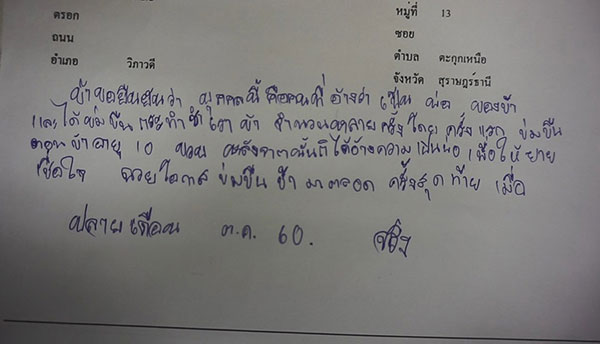 ตรอก หมู่ที่ 13
ถนน ซอย
อำเภอ วิภาวดี ตำบล ตะกุกเหนือ
จังหวัด สุราษฎร์ธานี
ข้าขอยืนยันว่า บุคคลนี้ คือคนที่ อ้างว่า เป็น พ่อ ของข้า
และได้ ข่มขืน กระทำชำเรา ข้า จำนวนหลายครั้ง โดย ครั้งแรก ข่มขืน
ตอน ข้าอายุ 10 ขวบ หลังจากนั้นก็ได้อ้างความเป็นพ่อ เพื่อให้ยาย
เชื่อใจ ฉวยโอกาส ข่มขืน ข้า มาตลอด ครั้งสุดท้าย เมื่อ
ปลายเดือน ต.ค. 60.